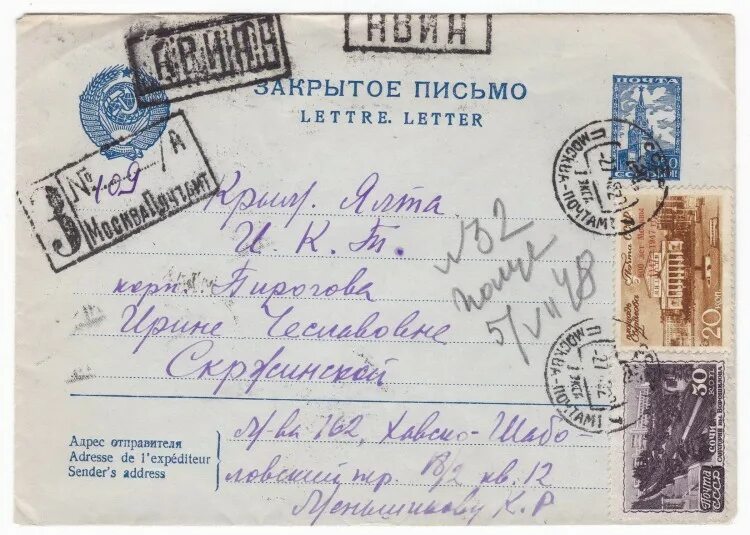 АВИА
ЗАКРЫТОЕ ПИСЬМО
LETTRE. LETTER
ПОЧТА
СССР
З
№ 109 /А
Москва Почтамт
МОСКВА-ПОЧТАМТ
Крым. Ялта
И. К. Т.
корп. Пирогова
Ирине Чеславовне
Скржинской
N32
5/VII 48
20 коп
МОСКВА-ПОЧТАМТ
30
КОП
СОЧИ
Почта
СССР
Адрес отправителя
Adresse de l'expéditeur
Sender's address
М-ва 162, Хавско-Шабо-
ловский пр. кв. 12
Меньшикову К. Р